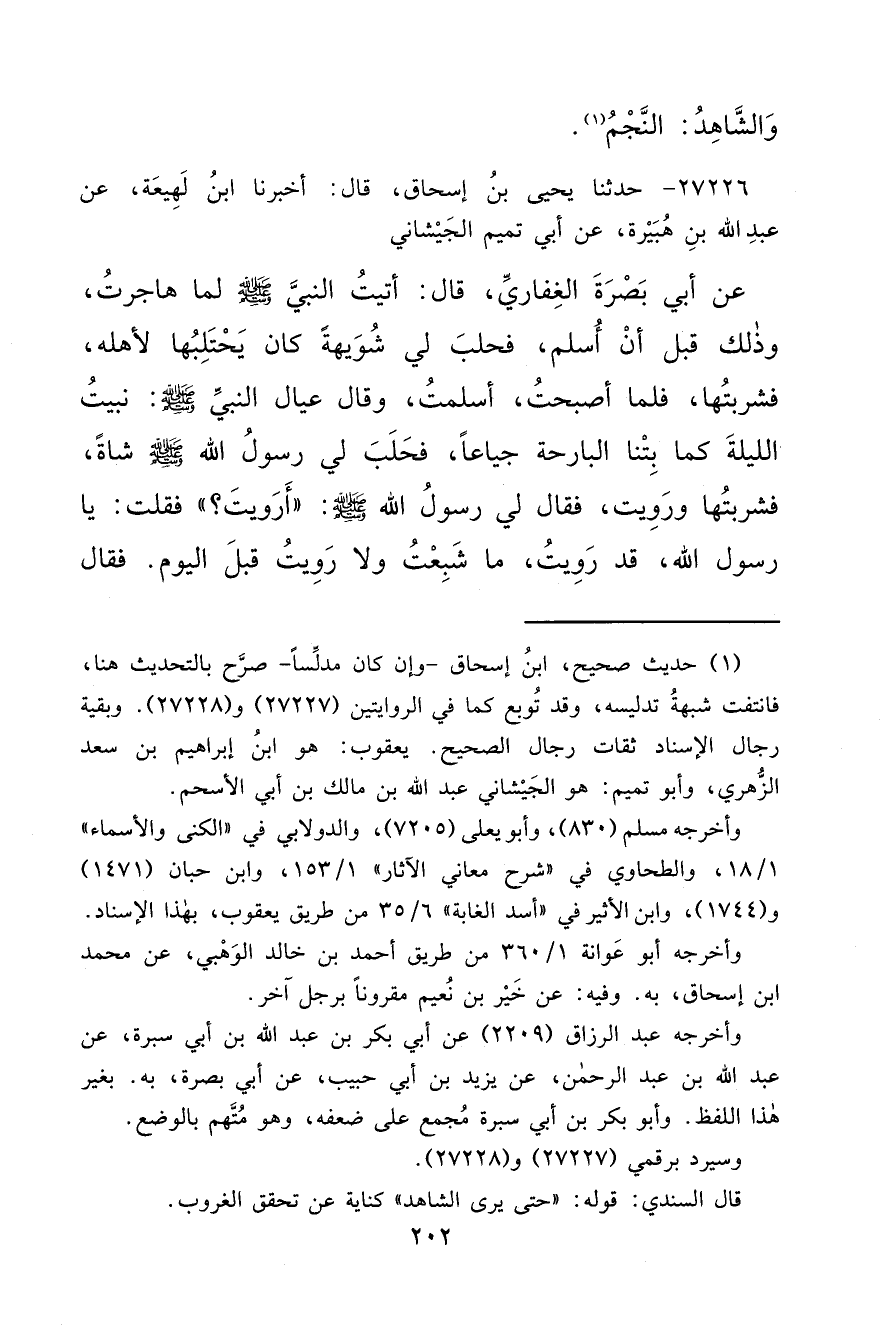 وَالشَّاهِدُ: النَّجْمُ(١).
٢٧٢٢٦- حدثنا يحيى بنُ إسحاق، قال: أخبرنا ابنُ لَهِيعَة، عن
عبدِ الله بنِ هُبَيْرة، عن أبي تميم الجَيْشاني
عن أبي بَصْرَةَ الغِفاريِّ، قال: أتيتُ النبيَّ ﷺ لما هاجرتُ،
وذٰلك قبل أنْ أُسلم، فحلبَ لي شُوَيهةً كان يَحْتَلِبُها لأهله،
فشربتُها، فلما أصبحتُ، أسلمتُ، وقال عيال النبيِّ ﷺ: نبيتُ
الليلةَ كما بِتْنا البارحة جياعاً، فحَلَبَ لي رسولُ الله ﷺ شاةً،
فشربتُها ورَوِيت، فقال لي رسولُ الله ﷺ: «أَرَوِيتَ؟» فقلت: يا
رسول الله، قد رَوِيتُ، ما شَبِعْتُ ولا رَوِيتُ قبلَ اليوم. فقال
(١) حديث صحيح، ابنُ إسحاق -وإن كان مدلِّساً- صرَّح بالتحديث هنا،
فانتفت شبهةُ تدليسه، وقد تُوبع كما في الروايتين (٢٧٢٢٧) و(٢٧٢٢٨). وبقية
رجال الإسناد ثقات رجال الصحيح. يعقوب: هو ابنُ إبراهيم بن سعد
الزُّهري، وأبو تميم: هو الجَيْشاني عبد الله بن مالك بن أبي الأسحم.
وأخرجه مسلم (٨٣٠)، وأبو يعلى (٧٢٠٥)، والدولابي في «الكنى والأسماء»
١٨/١، والطحاوي في «شرح معاني الآثار» ١٥٣/١، وابن حبان (١٤٧١)
و(١٧٤٤)، وابن الأثير في «أسد الغابة» ٣٥/٦ من طريق يعقوب، بهٰذا الإسناد.
وأخرجه أبو عَوانة ٣٦٠/١ من طريق أحمد بن خالد الوَهْبي، عن محمد
ابن إسحاق، به. وفيه: عن خَيْر بن نُعيم مقروناً برجل آخر.
وأخرجه عبد الرزاق (٢٢٠٩) عن أبي بكر بن عبد الله بن أبي سبرة، عن
عبد الله بن عبد الرحمٰن، عن يزيد بن أبي حبيب، عن أبي بصرة، به. بغير
هٰذا اللفظ. وأبو بكر بن أبي سبرة مُجمع على ضعفه، وهو مُتَّهم بالوضع.
وسيرد برقمي (٢٧٢٢٧) و(٢٧٢٢٨).
قال السندي: قوله: «حتى يرى الشاهد» كناية عن تحقق الغروب.
٢٠٢